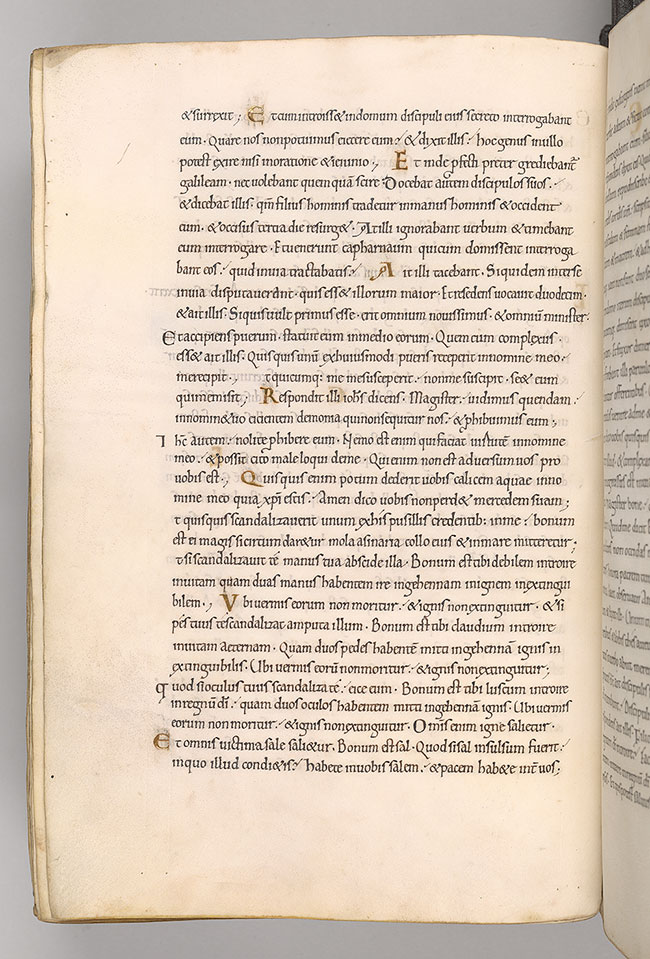 & surrexit; Et cum introiss& indomum discipuli eius secreto interrogabant
eum. Quare nos nonpotuimus eicere eum. & dixit illis. hoc genus inullo
potest exire nisi inoratione & ieiunio. Et inde pfecti preter grediebant̄
galileam. nec volebant quemquā scire. Docebat autem discipulos suos.
& dicebat illis. qm̄ filius hominis tradetur inmanus hominū & occident
eum. & occisus tercia die resurg&. At illi ignorabant uerbum & timebant
eum interrogare. Et uenerunt capharnaum qui cum domi essent interroga
bant eos. quid inuia tractabatis. At illi tacebant. Siquidem inter se
inuia disputauerant. quis ess& illorum maior. Et residens uocauit duodecim.
& ait illis. Siquis uult primus esse. erit omnium nouissimus. & omniū minister.
Et accipiens puerum. statuit eum inmedio eorum. Quem cum complexus
ess& ait illis. Quisquis unū ex huiusmodi pueris receperit innomine meo.
me recipit. t quicumq: me susceperit. non me suscipit. sed eum
qui me misit. Respondit illi iohs dicens. Magister. uidimus quendam
innomine tuo eicientem demonia qui non sequitur nos. & phibuimus eum;
Ihc autem. nolite phibere eum. Nemo est enim qui faciat uirtutē innomine
meo. & possit cito male loqui de me. Qui enim non est aduersum uos pro
uobis est. Quisquis enim potum dederit uobis calicem aquae inno
mine meo quia xpi estis. Amen dico uobis non perd& mercedem suam;
t quisquis scandalizauerit unum ex his pusillis credentib: inme. bonum
est ei magis si circumdar&ur mola asinaria collo eius & inmare mitteretur.
t si scandalizauit te manus tua abscide illa. Bonum est tibi debilem introire
inuitam quam duas manus habentem ire ingehennam inignem inextingui
bilem. Vbi uermis eorum non moritur. & ignis non extinguitur. & si
pes tuus te scandalizat amputa illum. Bonum est tibi claudum introire
inuitam aeternam. Quam duos pedes habentē mitti ingehennā ignis in
extinguibilis. Ubi uermis eorū non moritur. & ignis non extinguitur;
Quod si oculus tuus scandaliza te. eice eum. Bonum est tibi luscum introire
inregnū dī. quam duos oculos habentem mitti ingehennā ignis. Ubi uermis
eorum non moritur. & ignis non extinguitur. Omnis enim igne salietur.
Et omnis uictima sale sali&ur. Bonum est sal. Quod si sal insulsum fuerit.
inquo illud condi&is. habete inuobis salem. & pacem hab&e int̄ uos;